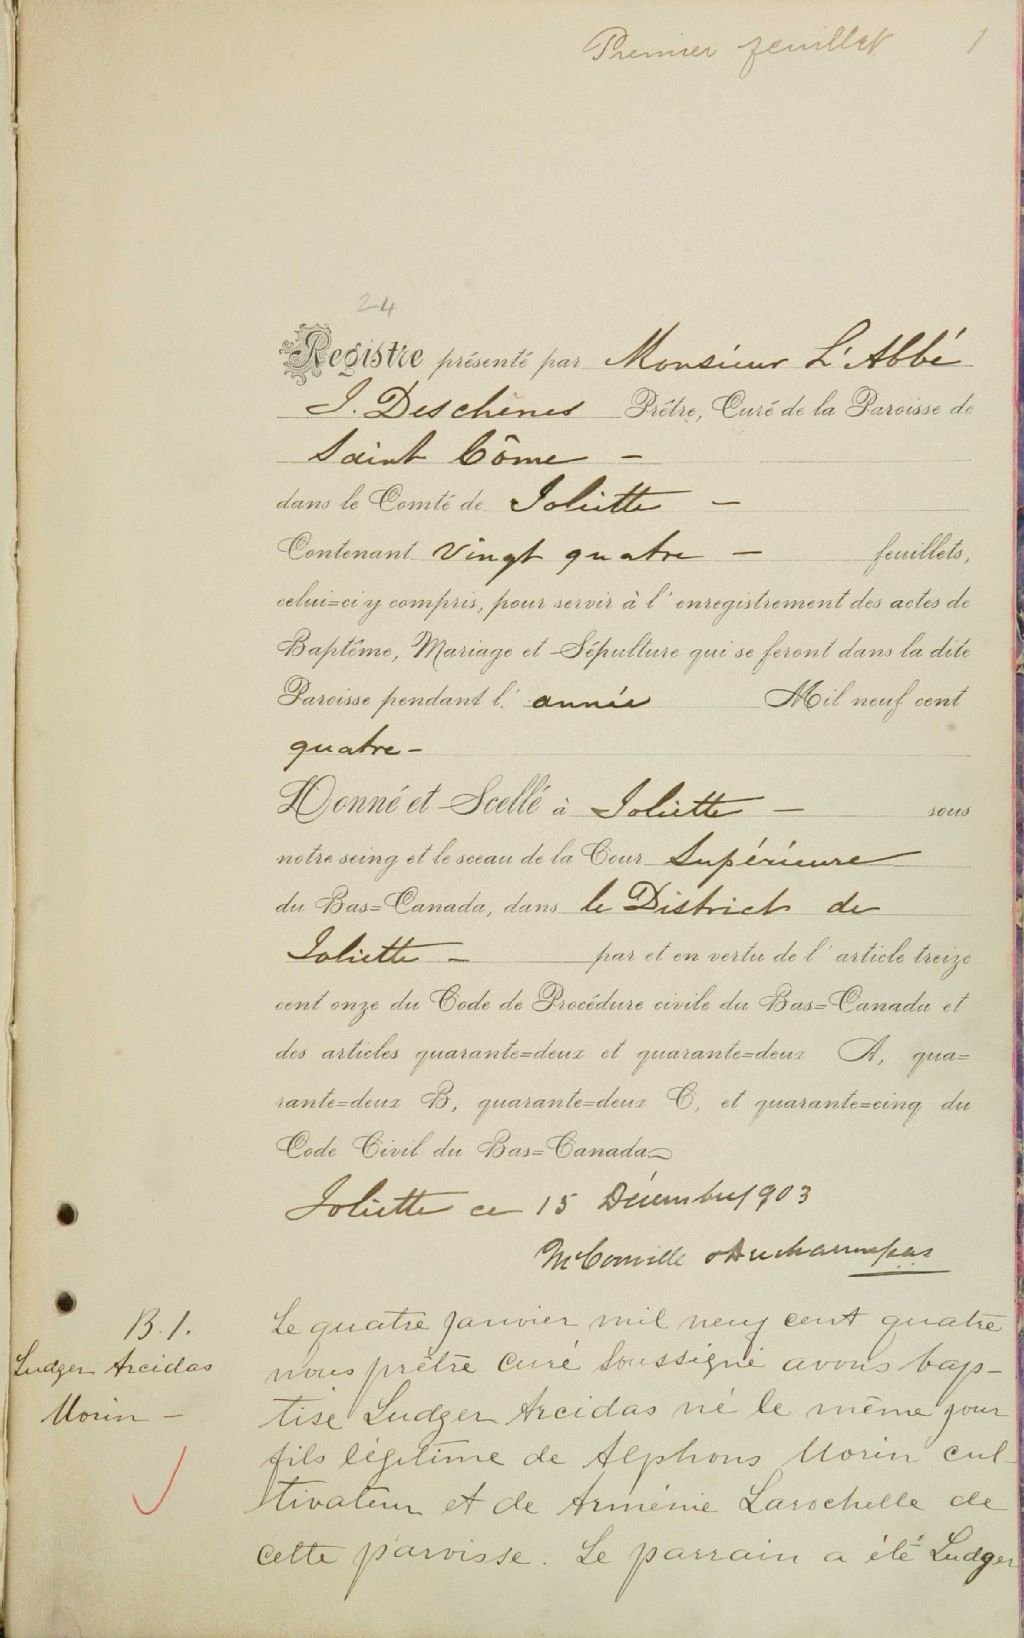 Premier feuillet 1
24
Registre présenté par Monsieur L'Abbé
J. Deschènes Prêtre, Curé de la Paroisse de
Saint Côme -
dans le Comté de Joliette -
Contenant Vingt quatre - feuillets,
celui=ci y compris, pour servir à l'enregistrement des actes de
Baptême, Mariage et Sépulture qui se feront dans la dite
Paroisse pendant l'année Mil neuf cent
quatre -
Donné et Scellé à Joliette - sous
notre seing et le sceau de la Cour Supérieure
du Bas=Canada, dans le District de
Joliette - par et en vertu de l'article treize
cent onze du Code de Procédure civile du Bas=Canada et
des articles quarante=deux et quarante=deux A, qua=
rante=deux B, quarante=deux C, et quarante=cinq du
Code Civil du Bas=Canada
Joliette ce 15 Décembre 1903
McConville & Duchamp
B. 1.
Ludger Arcidas
Morin -
Le quatre janvier mil neuf cent quatre
nous prêtre curé soussigné avons bap-
tisé Ludger Arcidas né le même jour
fils légitime de Alphons Morin cul-
tivateur et de Arménie Larochelle de
cette paroisse. Le parrain a été Ludger